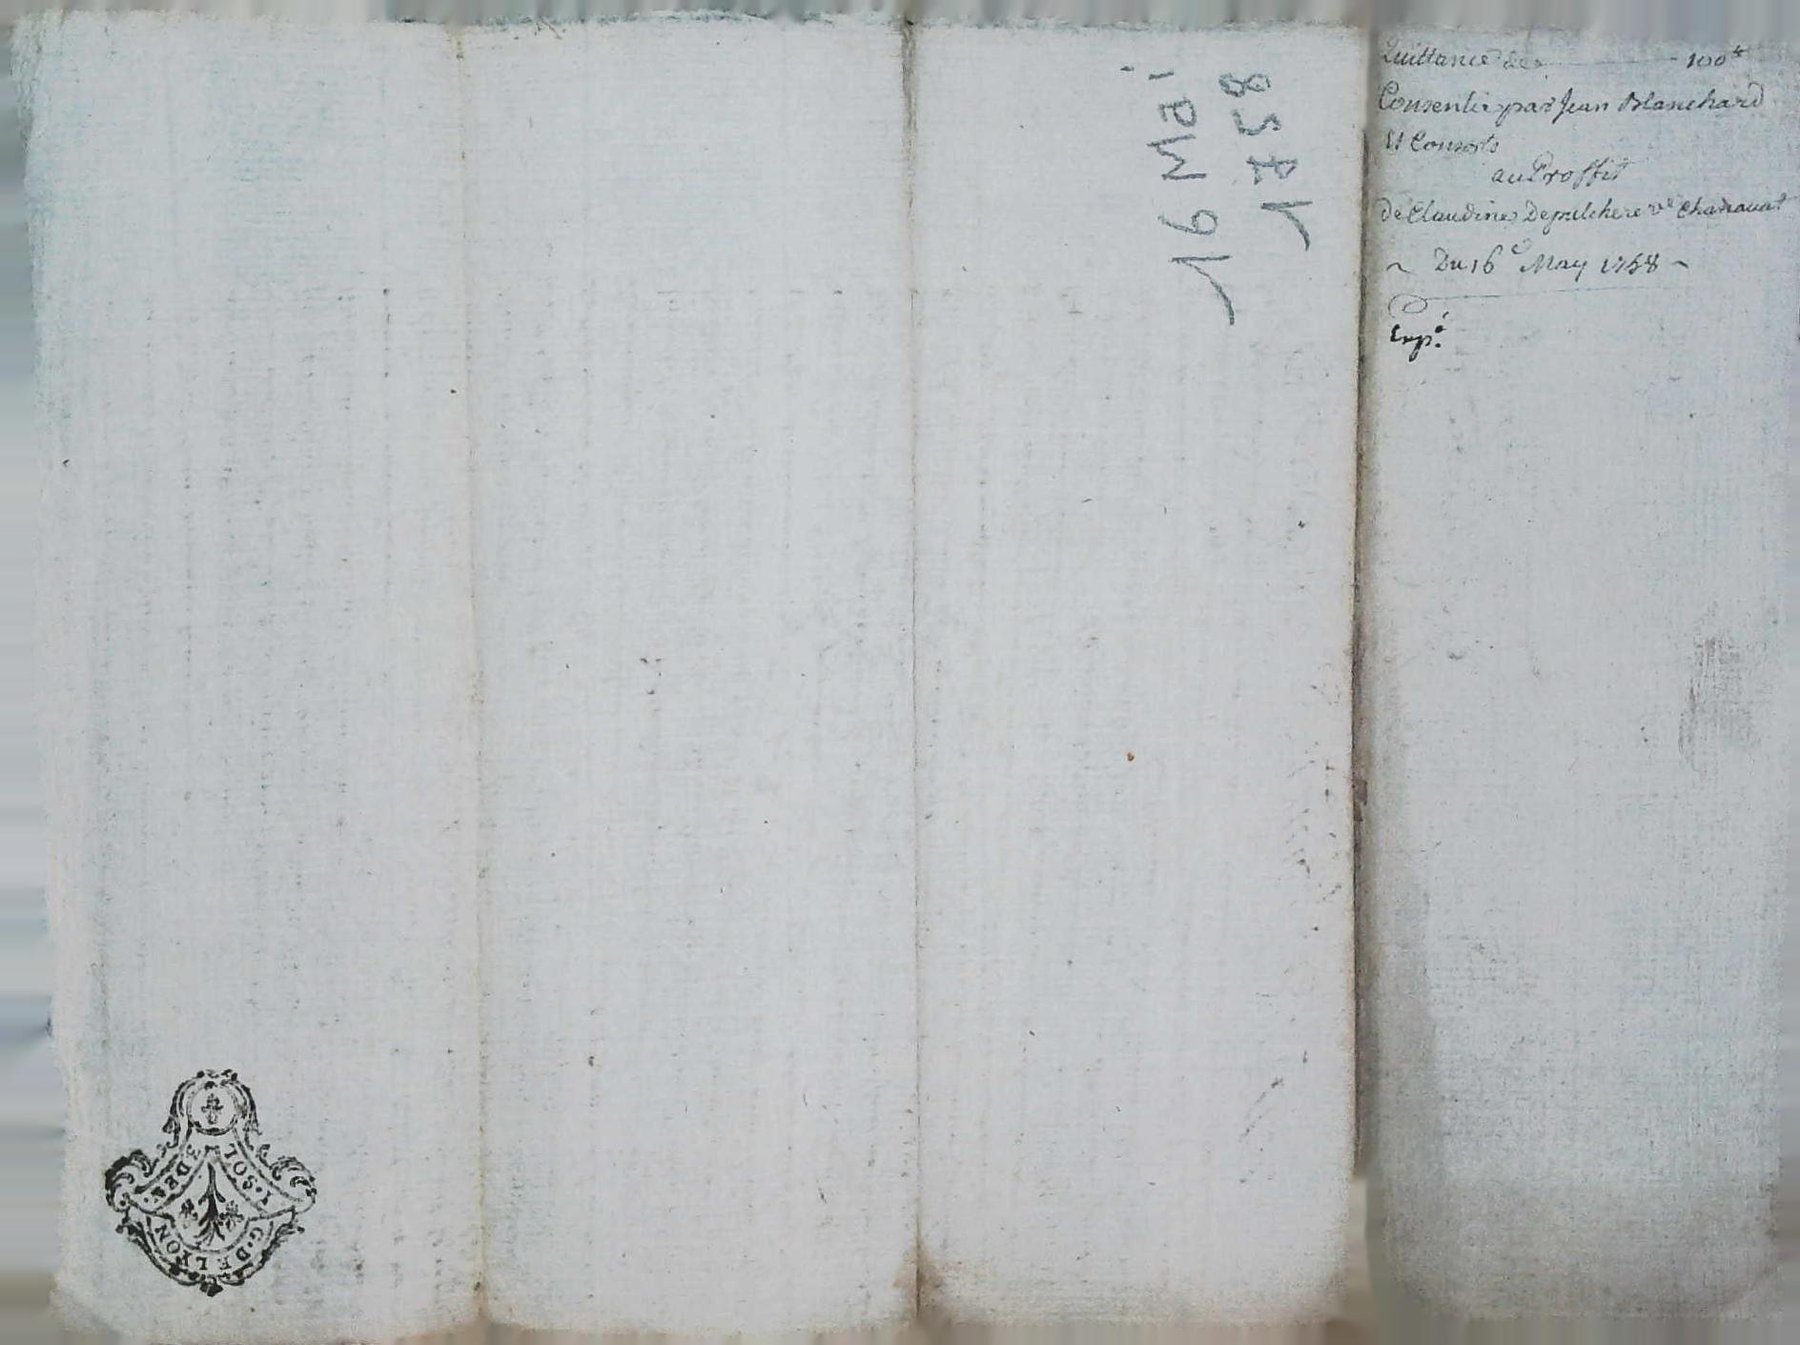 Quittance de 100#
Consentie par Jean Blanchard
Et Consorts
au Proffit
de Claudine Depulchere ve Chanavat
~ Du 16e May 1758 ~
Exp.é
16 Mai
1758
G. DE LYON
1. SOL 3 DEN.